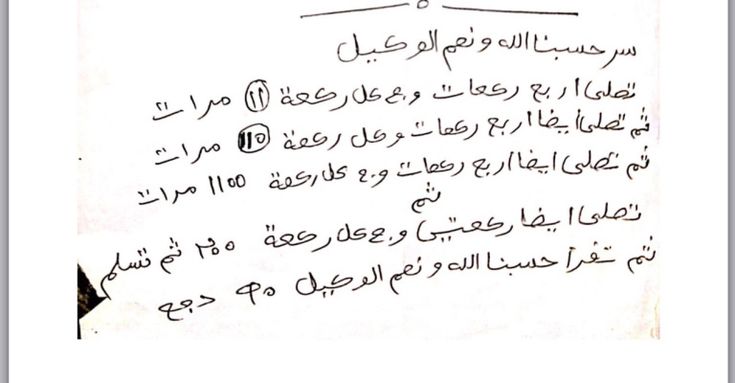 سر حسبنا الله ونعم الوكيل
تصلى اربع ركعات وفي كل ركعة 11 مرات
ثم تصلى أيضا اربع ركعات وكل ركعة 110 مرات
ثم تصلى ايضا اربع ركعات وفي كل ركعة 1100 مرات
ثم
تصلى ايضا ركعتين وفي كل ركعة ثم تسلم
ثم تقرأ حسبنا الله ونعم الوكيل